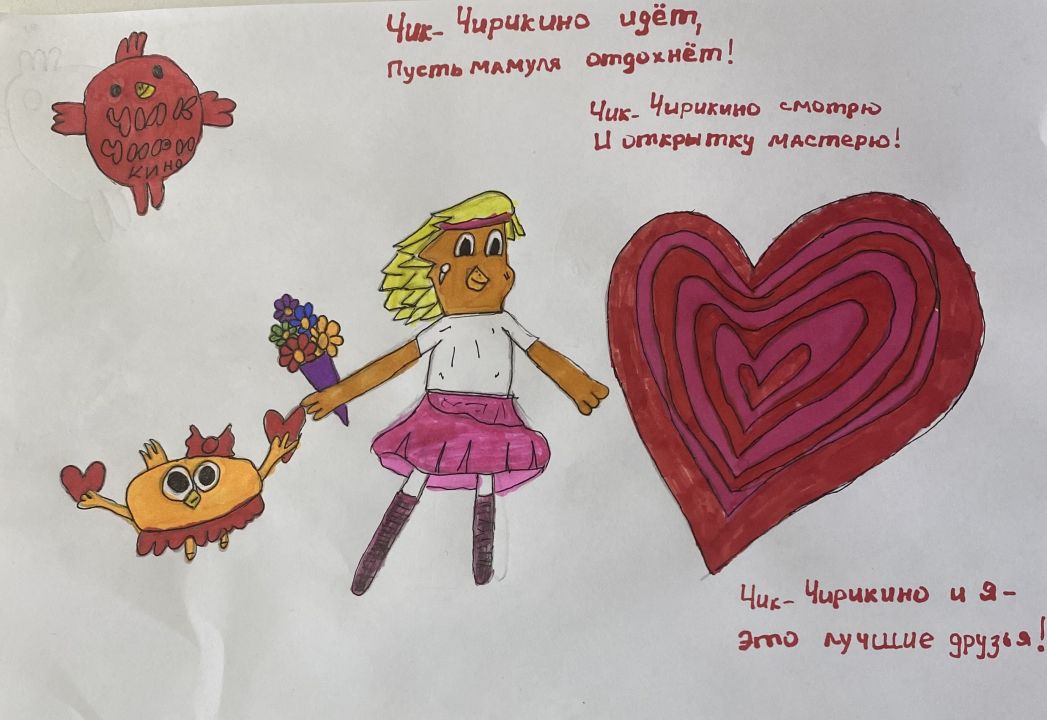 Чик-Чирикино идёт,
Пусть мамуля отдохнёт!
Чик-Чирикино смотрю
И открытку мастерю!
Чик
Чири
кино
Чик-Чирикино и я-
это лучшие друзья!